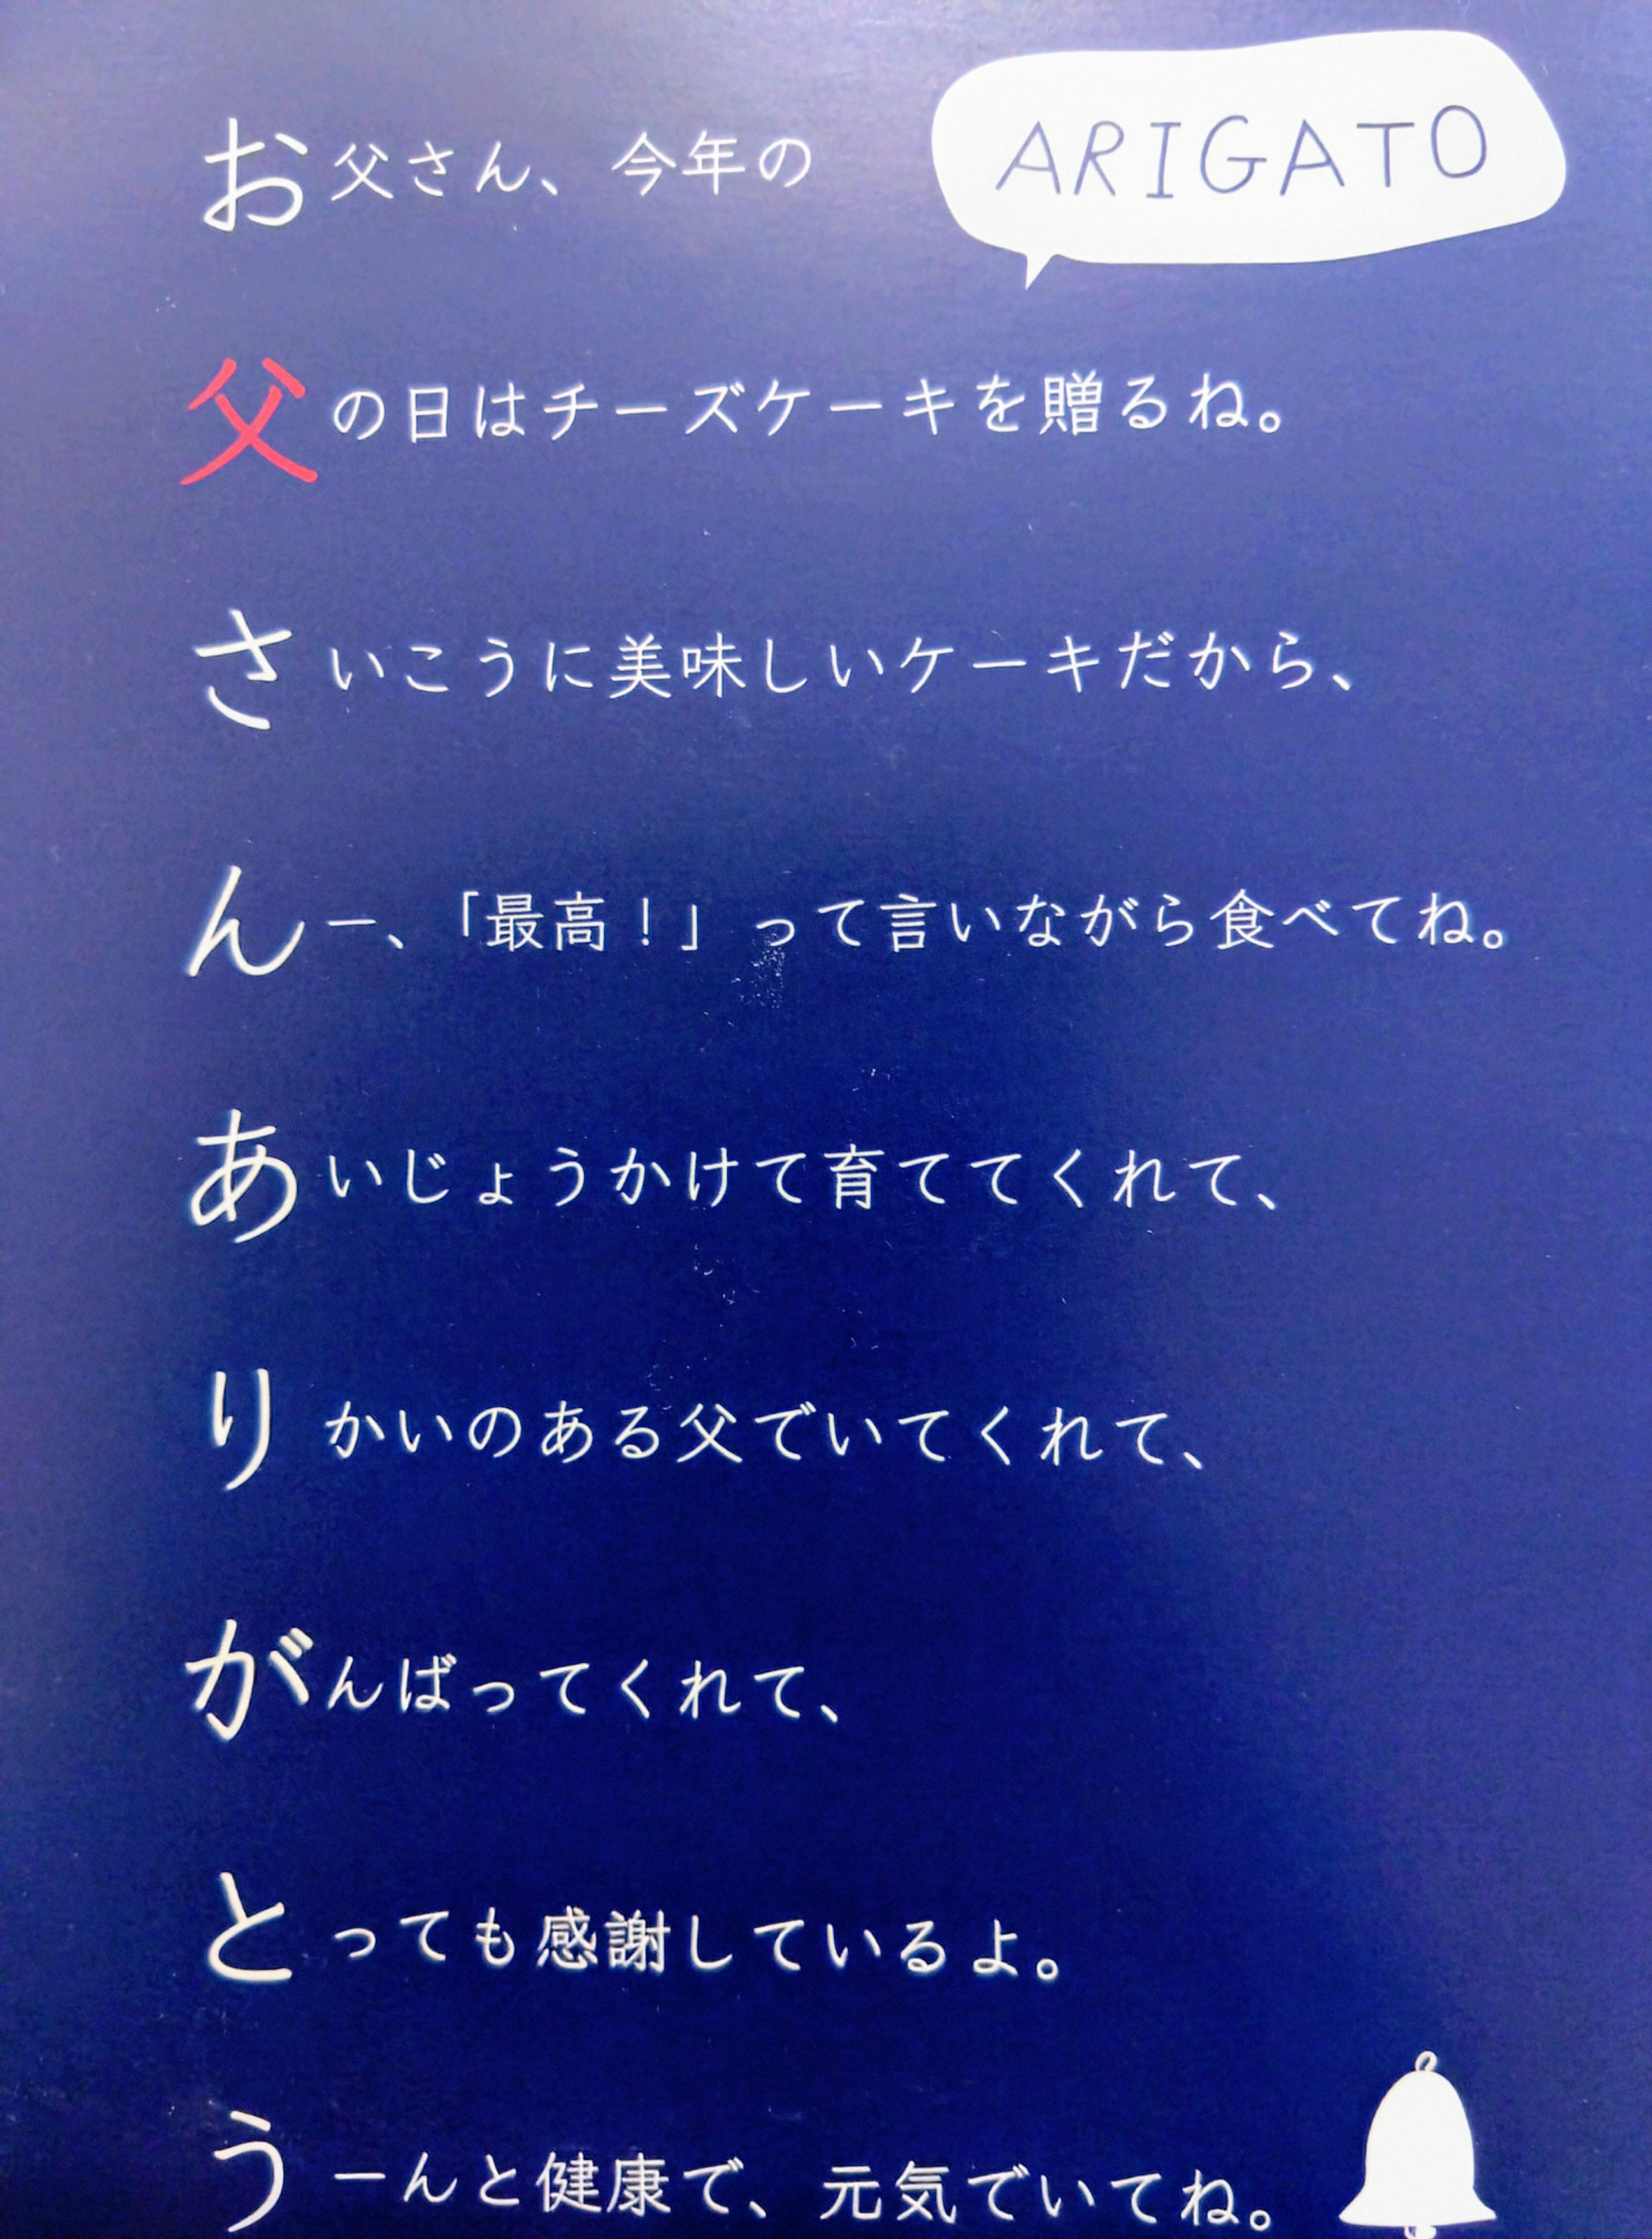 ARIGATO
お父さん、今年の
父の日はチーズケーキを贈るね。
さいこうに美味しいケーキだから、
んー、「最高！」って言いながら食べてね。
あいじょうかけて育ててくれて、
りかいのある父でいてくれて、
がんばってくれて、
とっても感謝しているよ。
うーんと健康で、元気でいてね。